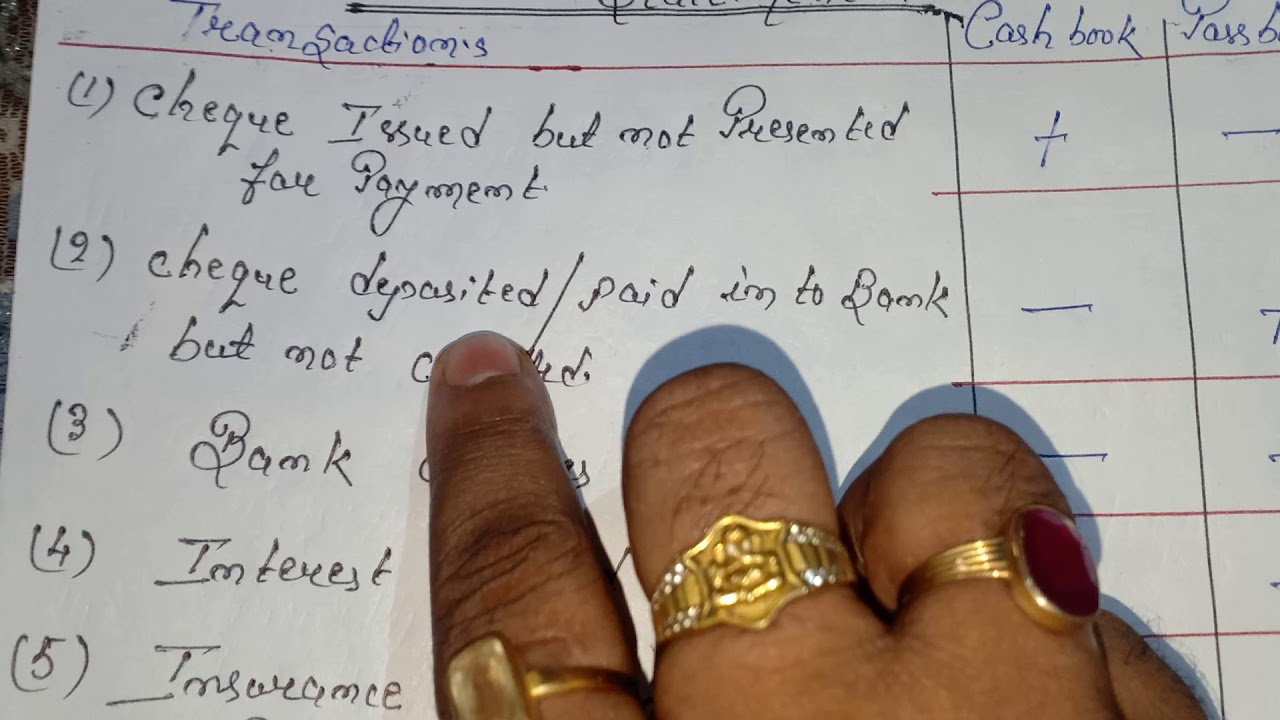 Transactionis Cash book Pass b
(1) Cheque Issued but not Presented + —
for Payment.
(2) Cheque deposited/paid in to Bank —
but not
(3) Bank —
(4) Interest
(5) Insurance